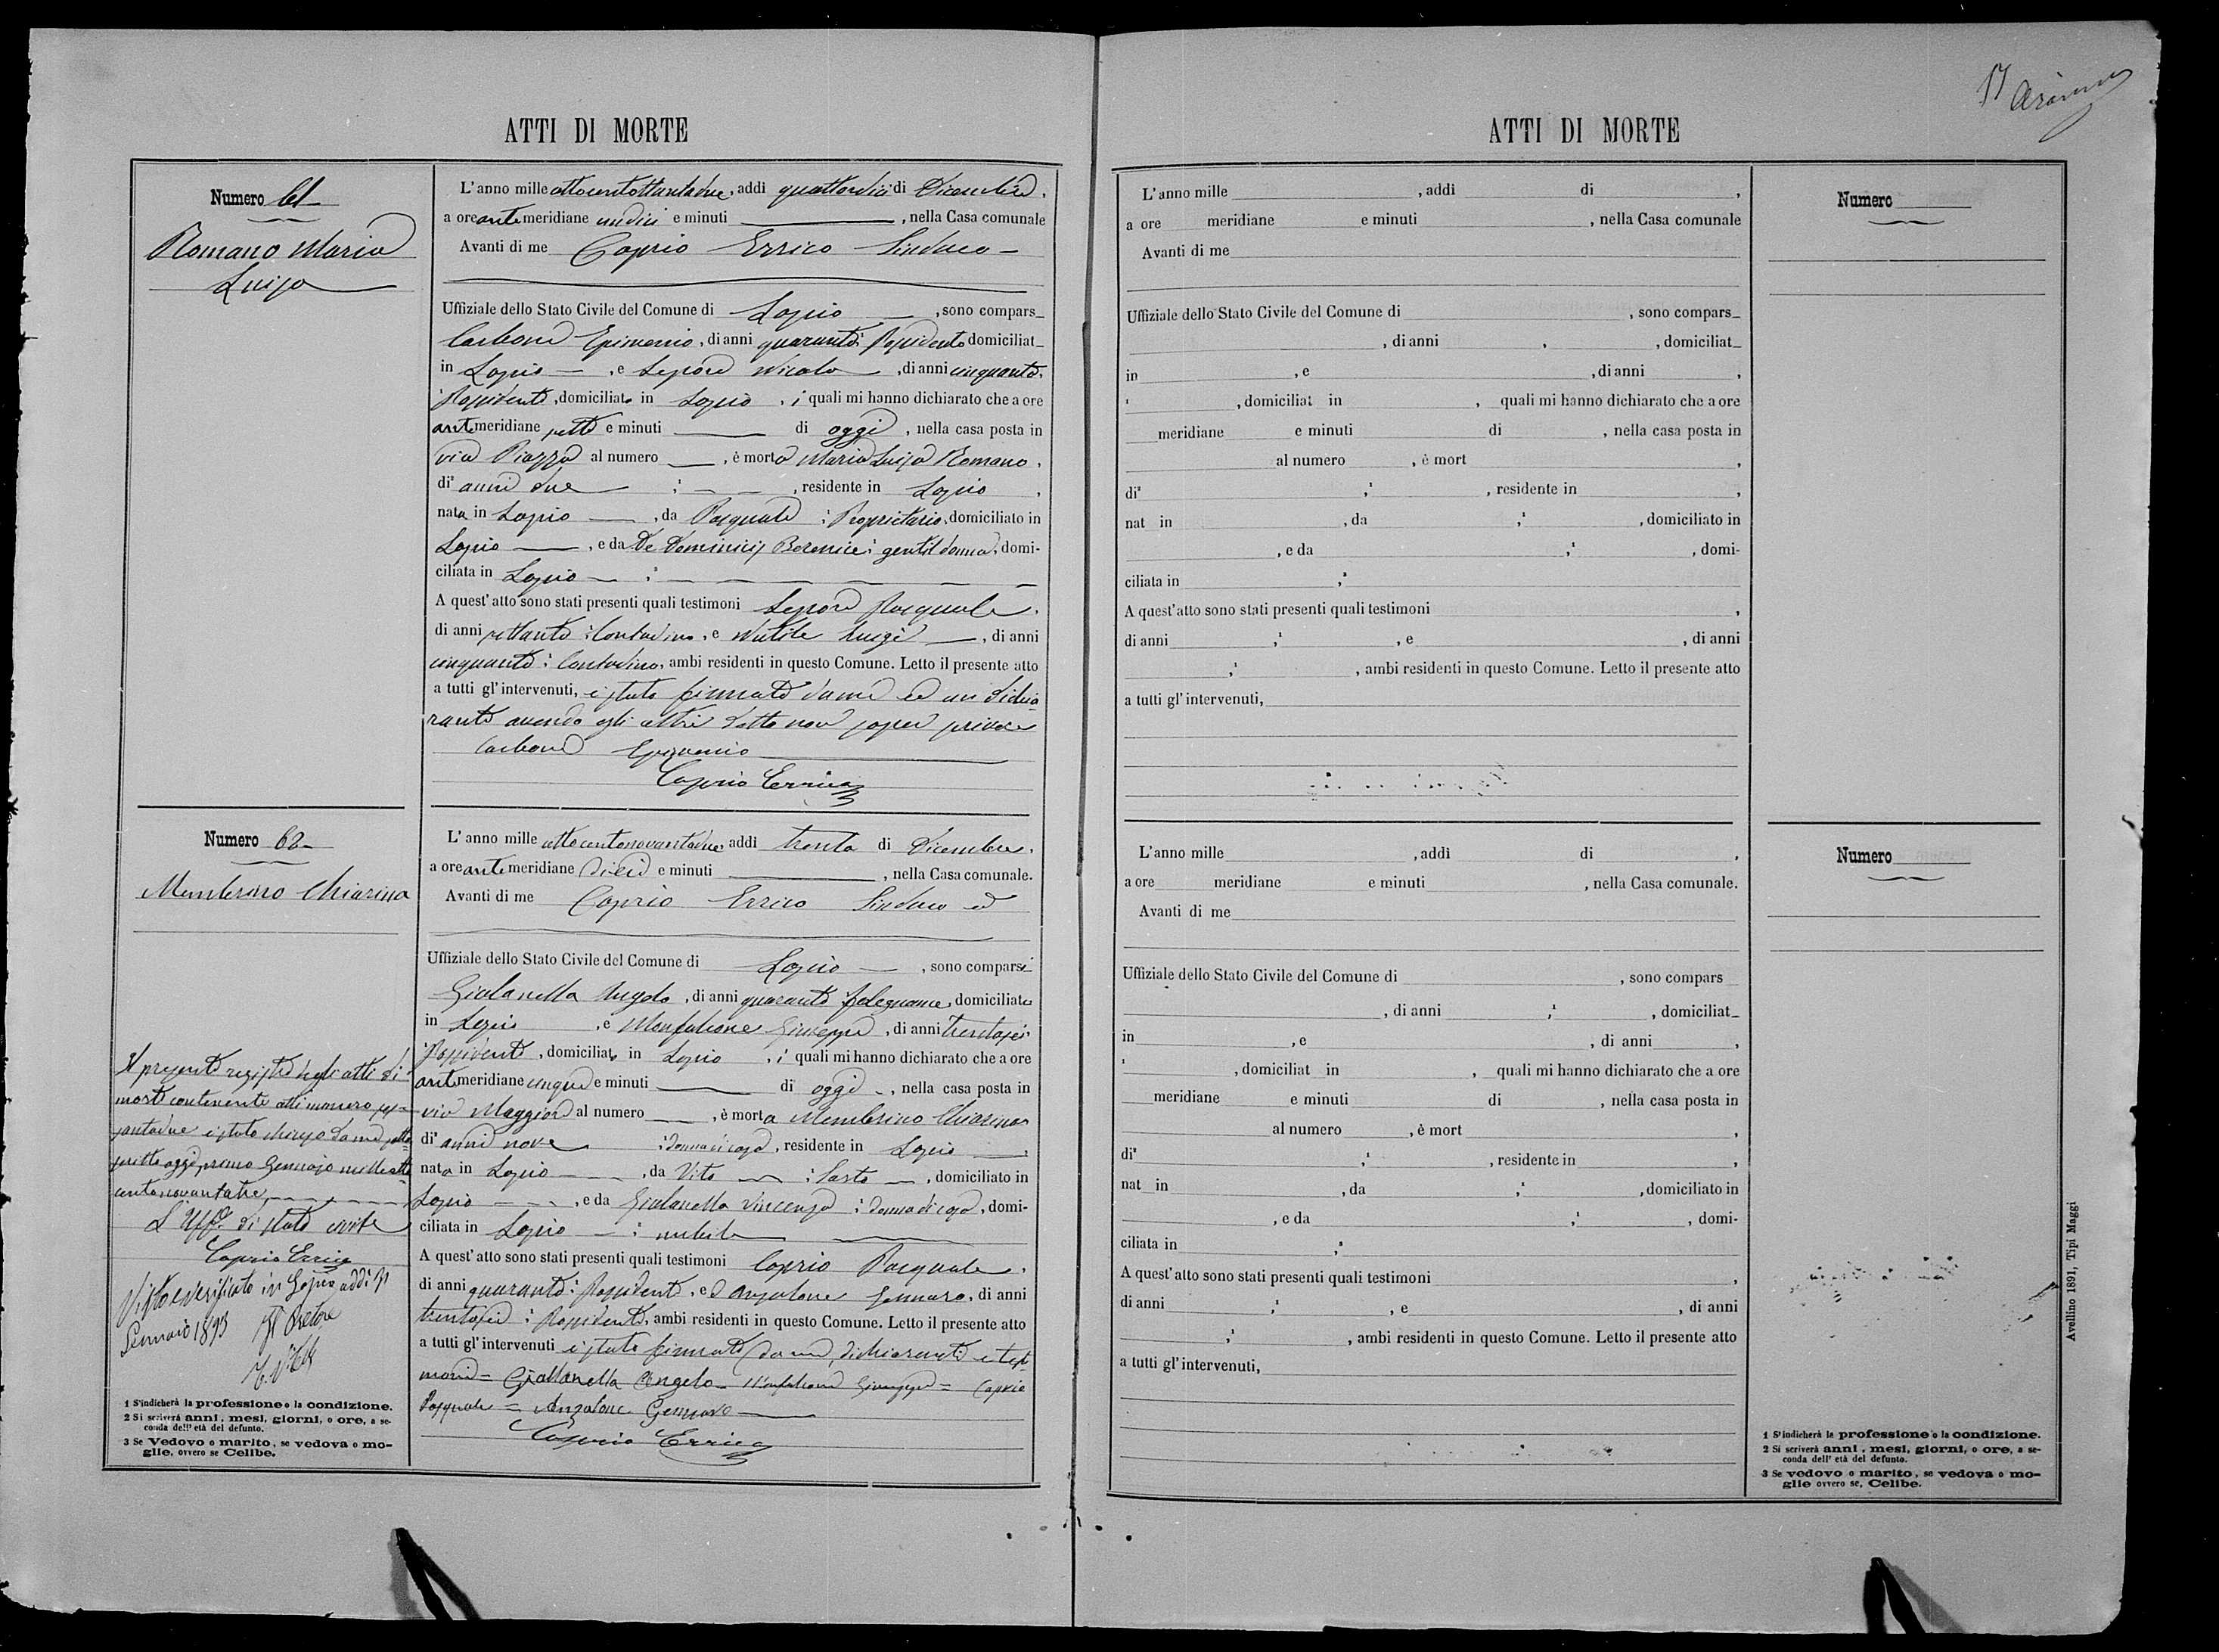 ATTI DI MORTE
Numero 61
Romano Maria
Luisa
L'anno mille ottocentottantadue, addì quattordici di Dicembre,
a ore antemeridiane undici e minuti ———, nella Casa comunale
Avanti di me Caprio Errico Sindaco
Uffiziale dello Stato Civile del Comune di Lapio —, sono compars_
Carbone Epimenio, di anni quaranta, Possidente domiciliat_
in Lapio —, e Lepore Nicola, di anni cinquanta,
Possidente, domiciliato in Lapio, i quali mi hanno dichiarato che a ore
antemeridiane sette e minuti —— di oggi, nella casa posta in
via Piazza al numero —, è morta Maria Luisa Romano,
di² anni due ; — —, residente in Lapio,
nata in Lapio —, da Pasquale ; Proprietario, domiciliato in
Lapio —, e da De Dominicis Berenice ; gentildonna, domi-
ciliata in Lapio — ;³ — — —
A quest'atto sono stati presenti quali testimoni Lepore Pasquale,
di anni settanta ; Contadino, e Nutile Luigi —, di anni
cinquanta ; Contadino, ambi residenti in questo Comune. Letto il presente atto
a tutti gl'intervenuti, è stato firmato da me ed un dichia
rante avendo gli altri detto non saper scrivere
Carbone Epimenio
Caprio Errico
Numero 62
Membrino Chiarina
L'anno mille ottocentonovantadue, addì trenta di Dicembre,
a ore antemeridiane dieci e minuti ———, nella Casa comunale.
Avanti di me Caprio Errico Sindaco ed
Uffiziale dello Stato Civile del Comune di Lapio —, sono comparsi
Giallanella Angelo, di anni quaranta, falegname, domiciliato
in Lapio, e Monfalcone Giuseppe, di anni trentasei,
Possidente, domiciliato in Lapio, i quali mi hanno dichiarato che a ore
antemeridiane cinque e minuti —— di oggi, nella casa posta in
via Maggiore al numero —, è morta Membrino Chiarina
di² anni nove ; donna di casa, residente in Lapio —,
nata in Lapio —, da Vito — ; Sarto —, domiciliato in
Lapio —, e da Giallanella Vincenza ; donna di casa, domi-
ciliata in Lapio — ; nubile
A quest'atto sono stati presenti quali testimoni Caprio Pasquale,
di anni quaranta ; Possidente, ed Anzalone Gennaro, di anni
trentasei ; Possidente, ambi residenti in questo Comune. Letto il presente atto
a tutti gl'intervenuti è stato firmato da me, dichiaranti e testi
moni = Giallanella Angelo = Monfalcone Giuseppe = Caprio
Pasquale = Anzalone Gennaro
Caprio Errico
Il presente registro degli atti di
morte contenente atti numero ses-
santadue è stato chiuso da me sotto
scritto oggi, primo Gennajo milleotto
centonovantatre
L'Uff.e di stato civile
Caprio Errico
Visto e verificato in Lapio addì
Gennaio 1893 Il Pretore
1 S'indicherà la professione o la condizione.
2 Si scriverà anni, mesi, giorni, o ore, a se-
conda dell' età del defunto.
3 Se Vedovo o marito, se vedova o mo-
glie, ovvero se Celibe.
17
ATTI DI MORTE
L'anno mille , addì di ,
a ore meridiane e minuti , nella Casa comunale
Avanti di me
Uffiziale dello Stato Civile del Comune di , sono compars_
, di anni , , domiciliat_
in , e , di anni ,
¹ , domiciliat in , quali mi hanno dichiarato che a ore
meridiane e minuti di , nella casa posta in
al numero , è mort ,
di² ;¹ , residente in ,
nat in , da ;¹ , domiciliato in
, e da ;¹ , domi-
ciliata in ;³
A quest'atto sono stati presenti quali testimoni ,
di anni ;¹ , e , di anni
;¹ , ambi residenti in questo Comune. Letto il presente atto
a tutti gl'intervenuti,
Numero
L'anno mille , addì di ,
a ore meridiane e minuti , nella Casa comunale.
Avanti di me
Uffiziale dello Stato Civile del Comune di , sono compars
, di anni ;¹ , domiciliat_
in , e , di anni ,
¹ , domiciliat in , quali mi hanno dichiarato che a ore
meridiane e minuti di , nella casa posta in
al numero , è mort ,
di² ;¹ , residente in ,
nat in , da ;¹ , domiciliato in
, e da ;¹ , domi-
ciliata in ;³
A quest'atto sono stati presenti quali testimoni ,
di anni ;¹ , e , di anni
;¹ , ambi residenti in questo Comune. Letto il presente atto
a tutti gl'intervenuti,
Numero
1 S'indicherà la professione o la condizione.
2 Si scriverà anni, mesi, giorni, o ore, a se-
conda dell' età del defunto.
3 Se vedovo o marito, se vedova o mo-
glie ovvero se, Celibe.
Avellino 1891, Tipi Maggi